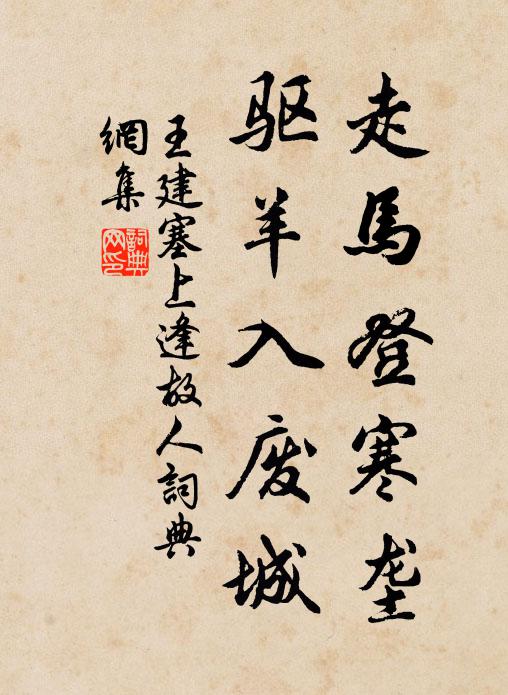 走馬登寒垄
驱羊入废城
王建塞上逢故人詞典
網集
詞典
网印